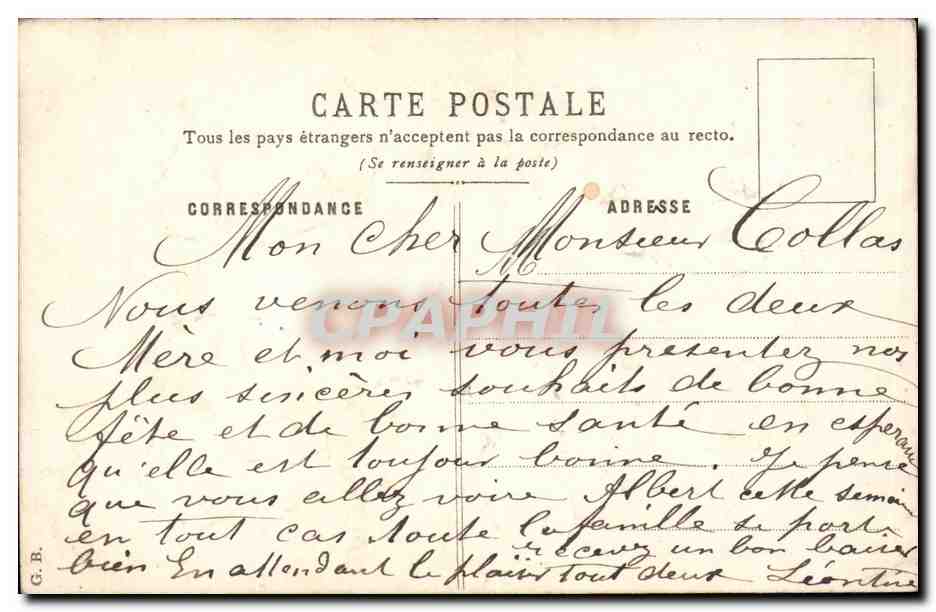 CARTE POSTALE
Tous les pays étrangers n'acceptent pas la correspondance au recto.
(Se renseigner à la poste)
CORRESPONDANCE
ADRESSE
Mon Cher Monsieur Collas
Nous venons toutes les deux
Mère et moi vous presentez nos
plus sincères souhaits de bonne
fête et de bonne santé en esperant
qu'elle est toujour bonne. Je pense
que vous allez voire Albert cette semaine
en tout cas toute la famille se porte
bien En attendant le plaisir tout deux
recevez un bon baiser
Léontine
G. B.
CPAPHIL